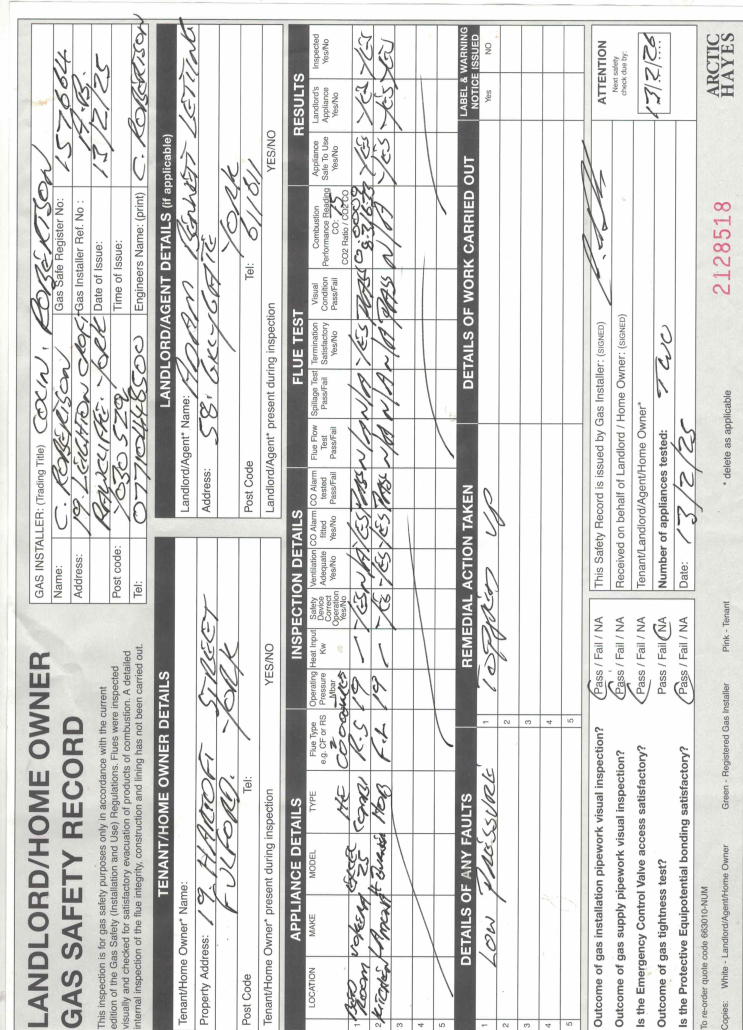 LANDLORD/HOME OWNER
GAS SAFETY RECORD
This inspection is for gas safety purposes only in accordance with the current
edition of the Gas Safety (Installation and Use) Regulations. Flues were inspected
visually and checked for satisfactory evacuation of products of combustion. A detailed
internal inspection of the flue integrity, construction and lining has not been carried out.
GAS INSTALLER: (Trading Title) COLIN. ROBERTSON
Name: C. ROBERTSON Gas Safe Register No: 157664
Address: 19. Gas Installer Ref. No : A.B.
RAWCLIFFE. YORK Date of Issue: 13/2/25
Post code: YO30 5 Time of Issue:
Tel: 07710448500 Engineers Name: (print) C. ROBERTSON
TENANT/HOME OWNER DETAILS
Tenant/Home Owner* Name:
Property Address: 19. STREET
FULFORD. YORK
Post Code Tel:
Tenant/Home Owner* present during inspection YES/NO
LANDLORD/AGENT DETAILS (if applicable)
Landlord/Agent* Name: ADAM BENNETT LETTING
Address: 58. GILLYGATE
YORK
Post Code Tel: 611811
Landlord/Agent* present during inspection YES/NO
APPLIANCE DETAILS
INSPECTION DETAILS
FLUE TEST
RESULTS
LOCATION MAKE MODEL TYPE Flue Type e.g. CF or RS Operating Pressure Mbar Heat Input Kw Safety Device Correct Operation Yes/No Ventilation Adequate Yes/No CO Alarm fitted Yes/No CO Alarm tested Pass/Fail Flue Flow Test Pass/Fail Spillage Test Pass/Fail Termination Satisfactory Yes/No Visual Condition Pass/Fail Combustion Performance Reading CO: 15 CO2 Ratio / CO2 CO Appliance Safe To Use Yes/No Landlord's Appliance Yes/No Inspected Yes/No
1 BED ROOM 25 COMBI R.S 19 - YES NA YES PASS NA NA YES PASS 0.0009 YES YES YES
2 KITCHEN HOB F.L 19 - YES YES YES PASS NA NA NA PASS N/A YES YES YES
3
4
5
DETAILS OF ANY FAULTS
REMEDIAL ACTION TAKEN
DETAILS OF WORK CARRIED OUT
LABEL & WARNING NOTICE ISSUED
Yes NO
1 LOW PRESSURE 1 TOPPED UP
2 2
3 3
4 4
5 5
Outcome of gas installation pipework visual inspection? Pass / Fail / NA
Outcome of gas supply pipework visual inspection? Pass / Fail / NA
Is the Emergency Control Valve access satisfactory? Pass / Fail / NA
Outcome of gas tightness test? Pass / Fail / NA
Is the Protective Equipotential bonding satisfactory? Pass / Fail / NA
This Safety Record is issued by Gas Installer: (SIGNED)
Received on behalf of Landlord / Home Owner: (SIGNED)
Tenant/Landlord/Agent/Home Owner*
Number of appliances tested: TWO
Date: 13/2/25
ATTENTION
Next safety
check due by:
13/2/26
To re-order quote code 663010-NUM
Copies: White - Landlord/Agent/Home Owner Green - Registered Gas Installer Pink - Tenant * delete as applicable
2128518
ARCTIC
HAYES